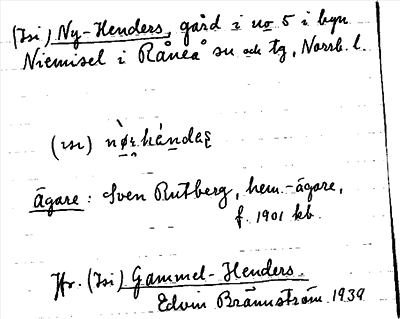 (Isi) Ny-Henders, gård i no 5 i byn
Niemisel i Råneå sn och tg, Norrb. l.
Ägare: Sven Rutberg, hem.-ägare,
f. 1901 kb.
Jfr. (Isi) Gammel-Henders.
Edvin Brännström 1939